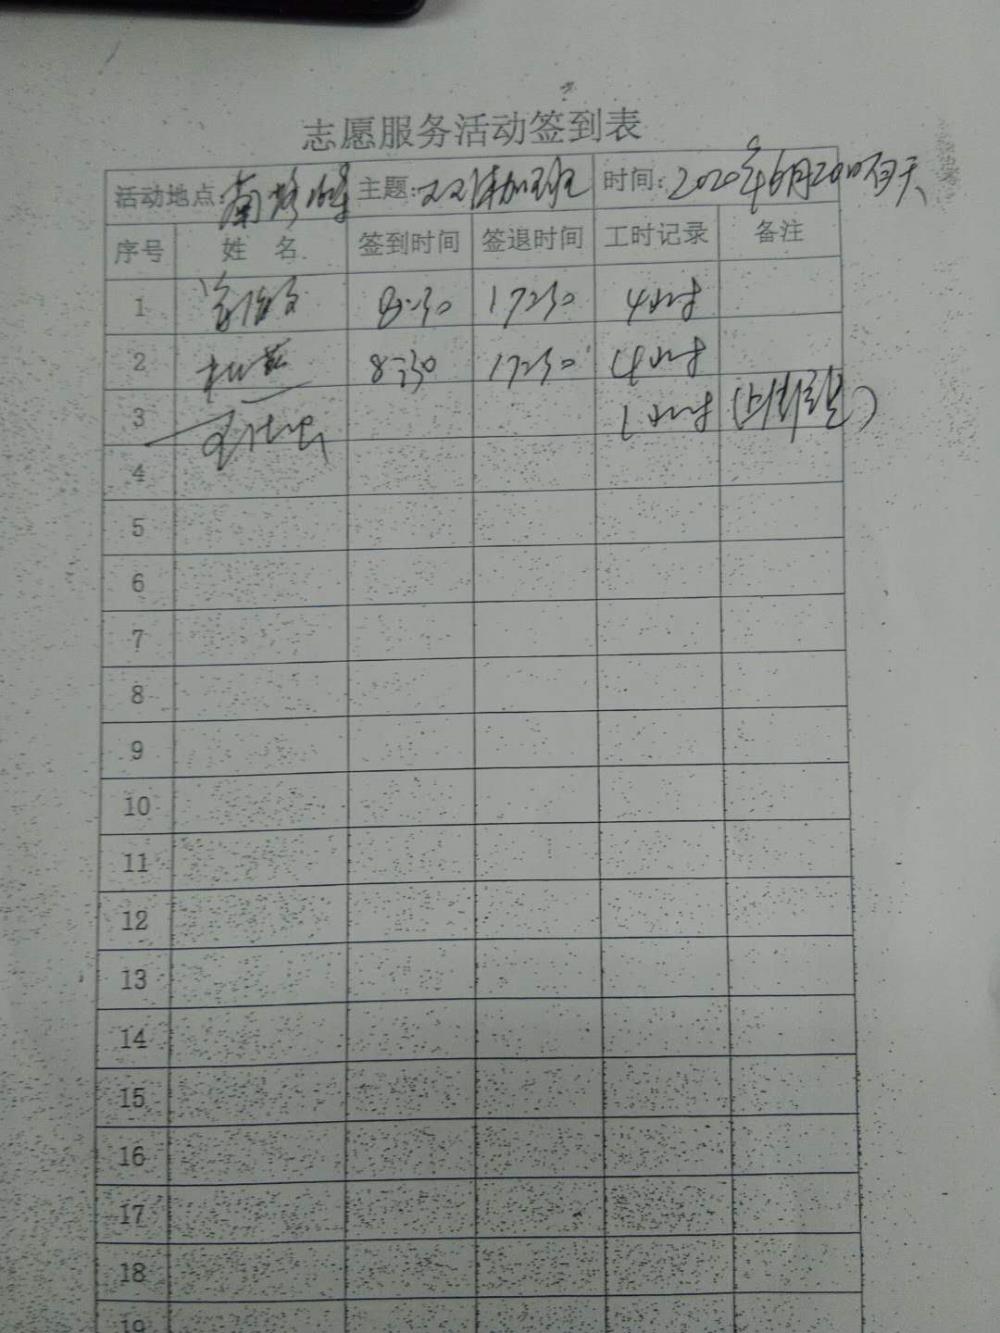 志愿服务活动签到表
活动地点: 主题: 加班 时间: 2020年6月20日白天
序号 姓 名 签到时间 签退时间 工时记录 备注
1 8:30 17:30 4小时
2 8:30 17:30 4小时
3 1小时
4
5
6
7
8
9
10
11
12
13
14
15
16
17
18
19